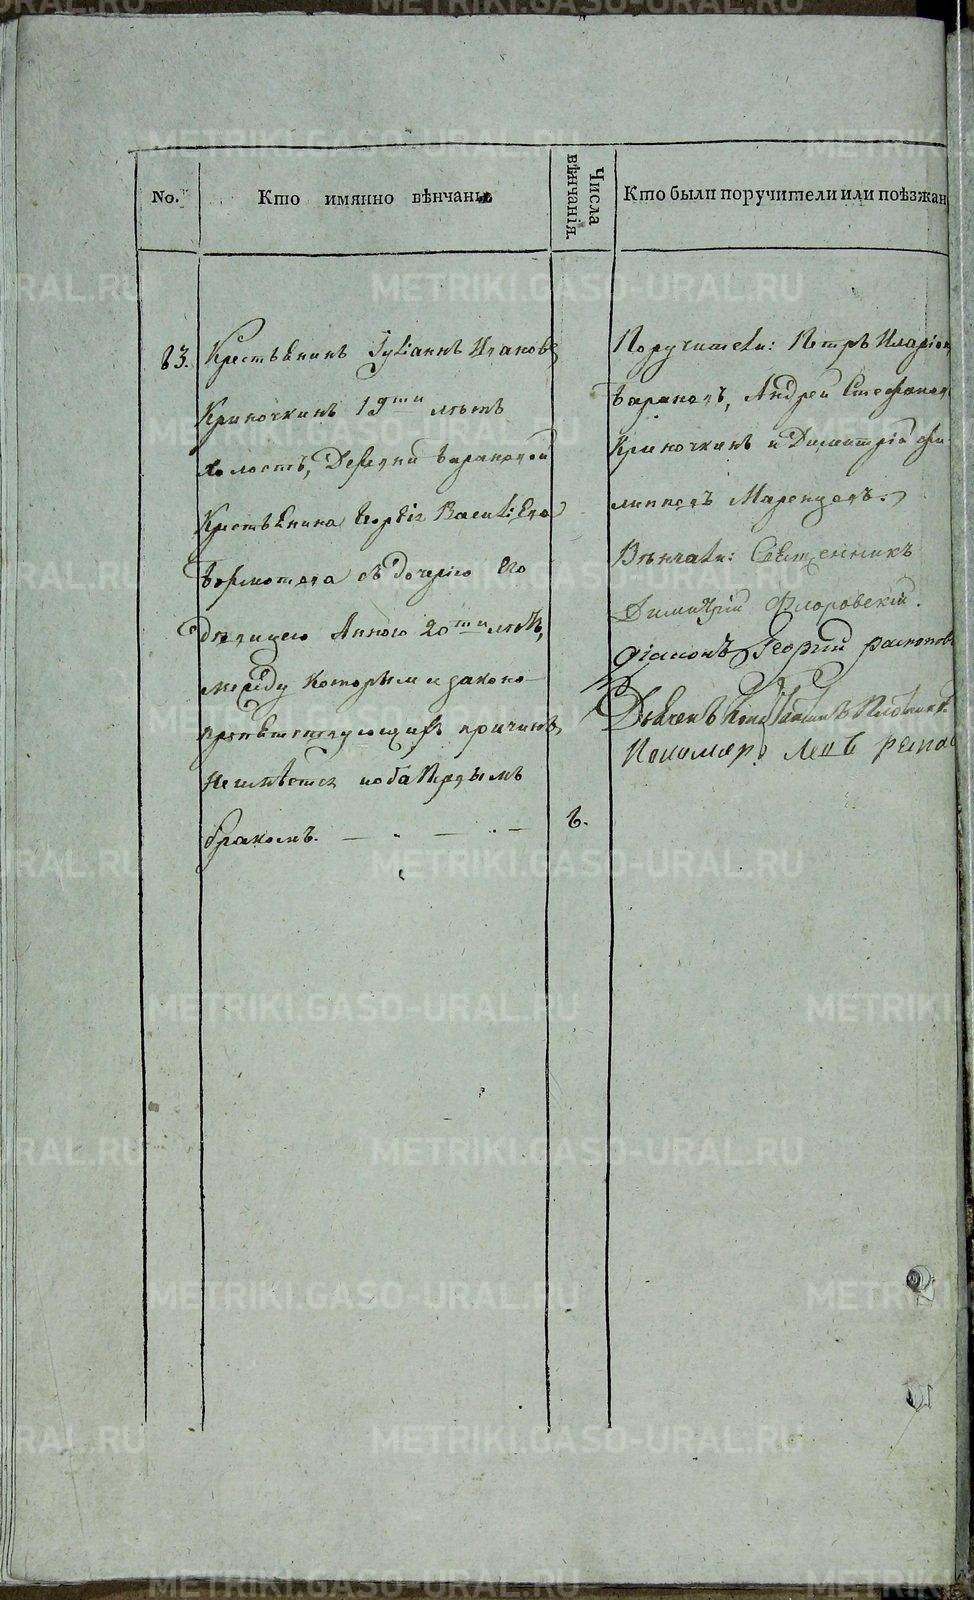 No.
Кто имянно вѣнчаны
Числа вѣнчанія.
Кто были поручители или поѣзжан
83.
Крестьянинъ Іуліанъ Ивановъ
Криночкинъ 19ти лѣтъ
холостъ, Деревни
Крестьянина Георгія Василіева
съ дочерію Его
Дѣвицею Анною 20ти лѣтъ,
между которыми законо-
препятствующихъ причинъ
неимѣется первымъ
бракомъ.
Поручители: Петръ Иларіон
Андрей Стефановъ
Криночкинъ и Димитрій Фи-
липповъ
Вѣнчали: Священникъ
Димитрій Флоровскій.
Діаконъ Георгій
Дьячекъ
Пономарь
METRIKI.GASO-URAL.RU